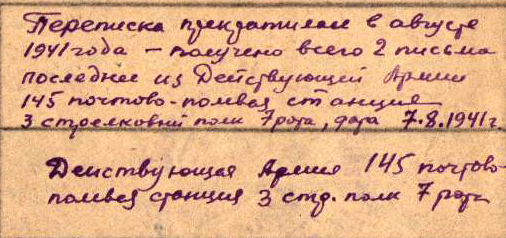 Переписка прекратилась в августе
1941 года – получено всего 2 письма
последнее из Действующей Армии
145 почтово-полевая станция
3 стрелковый полк 7 рота, дата 7.8.1941 г.
Действующая Армия 145 почтово-
полевая станция 3 стр. полк 7 рота